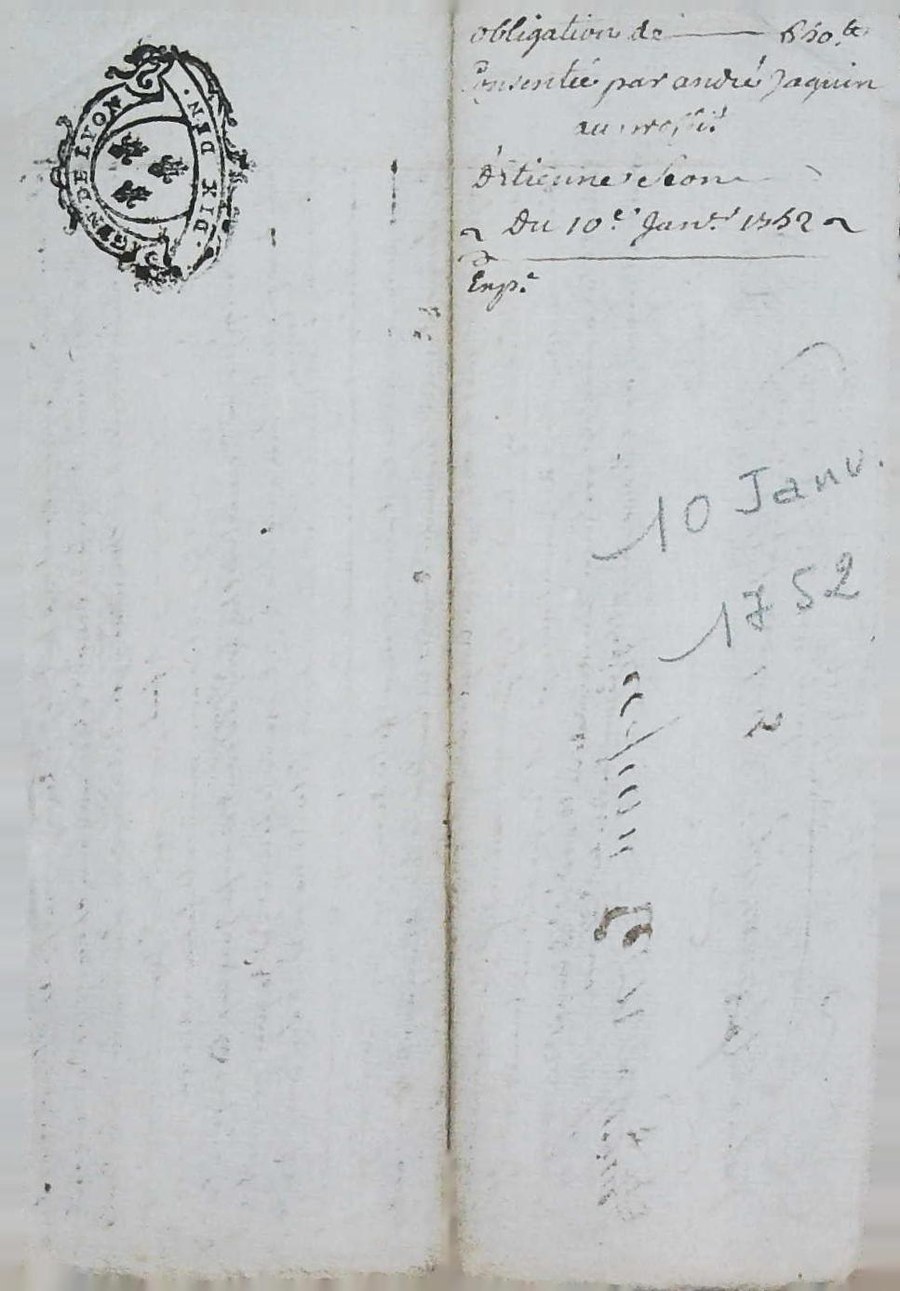 GEN DE LYON
DIX DEN.
obligation de 650.lt
Consentie par andré Jaquin
au proffit
d'Etienne Seon
Du 10e. Janv. 1752
Exp.e
10 Janv.
1752